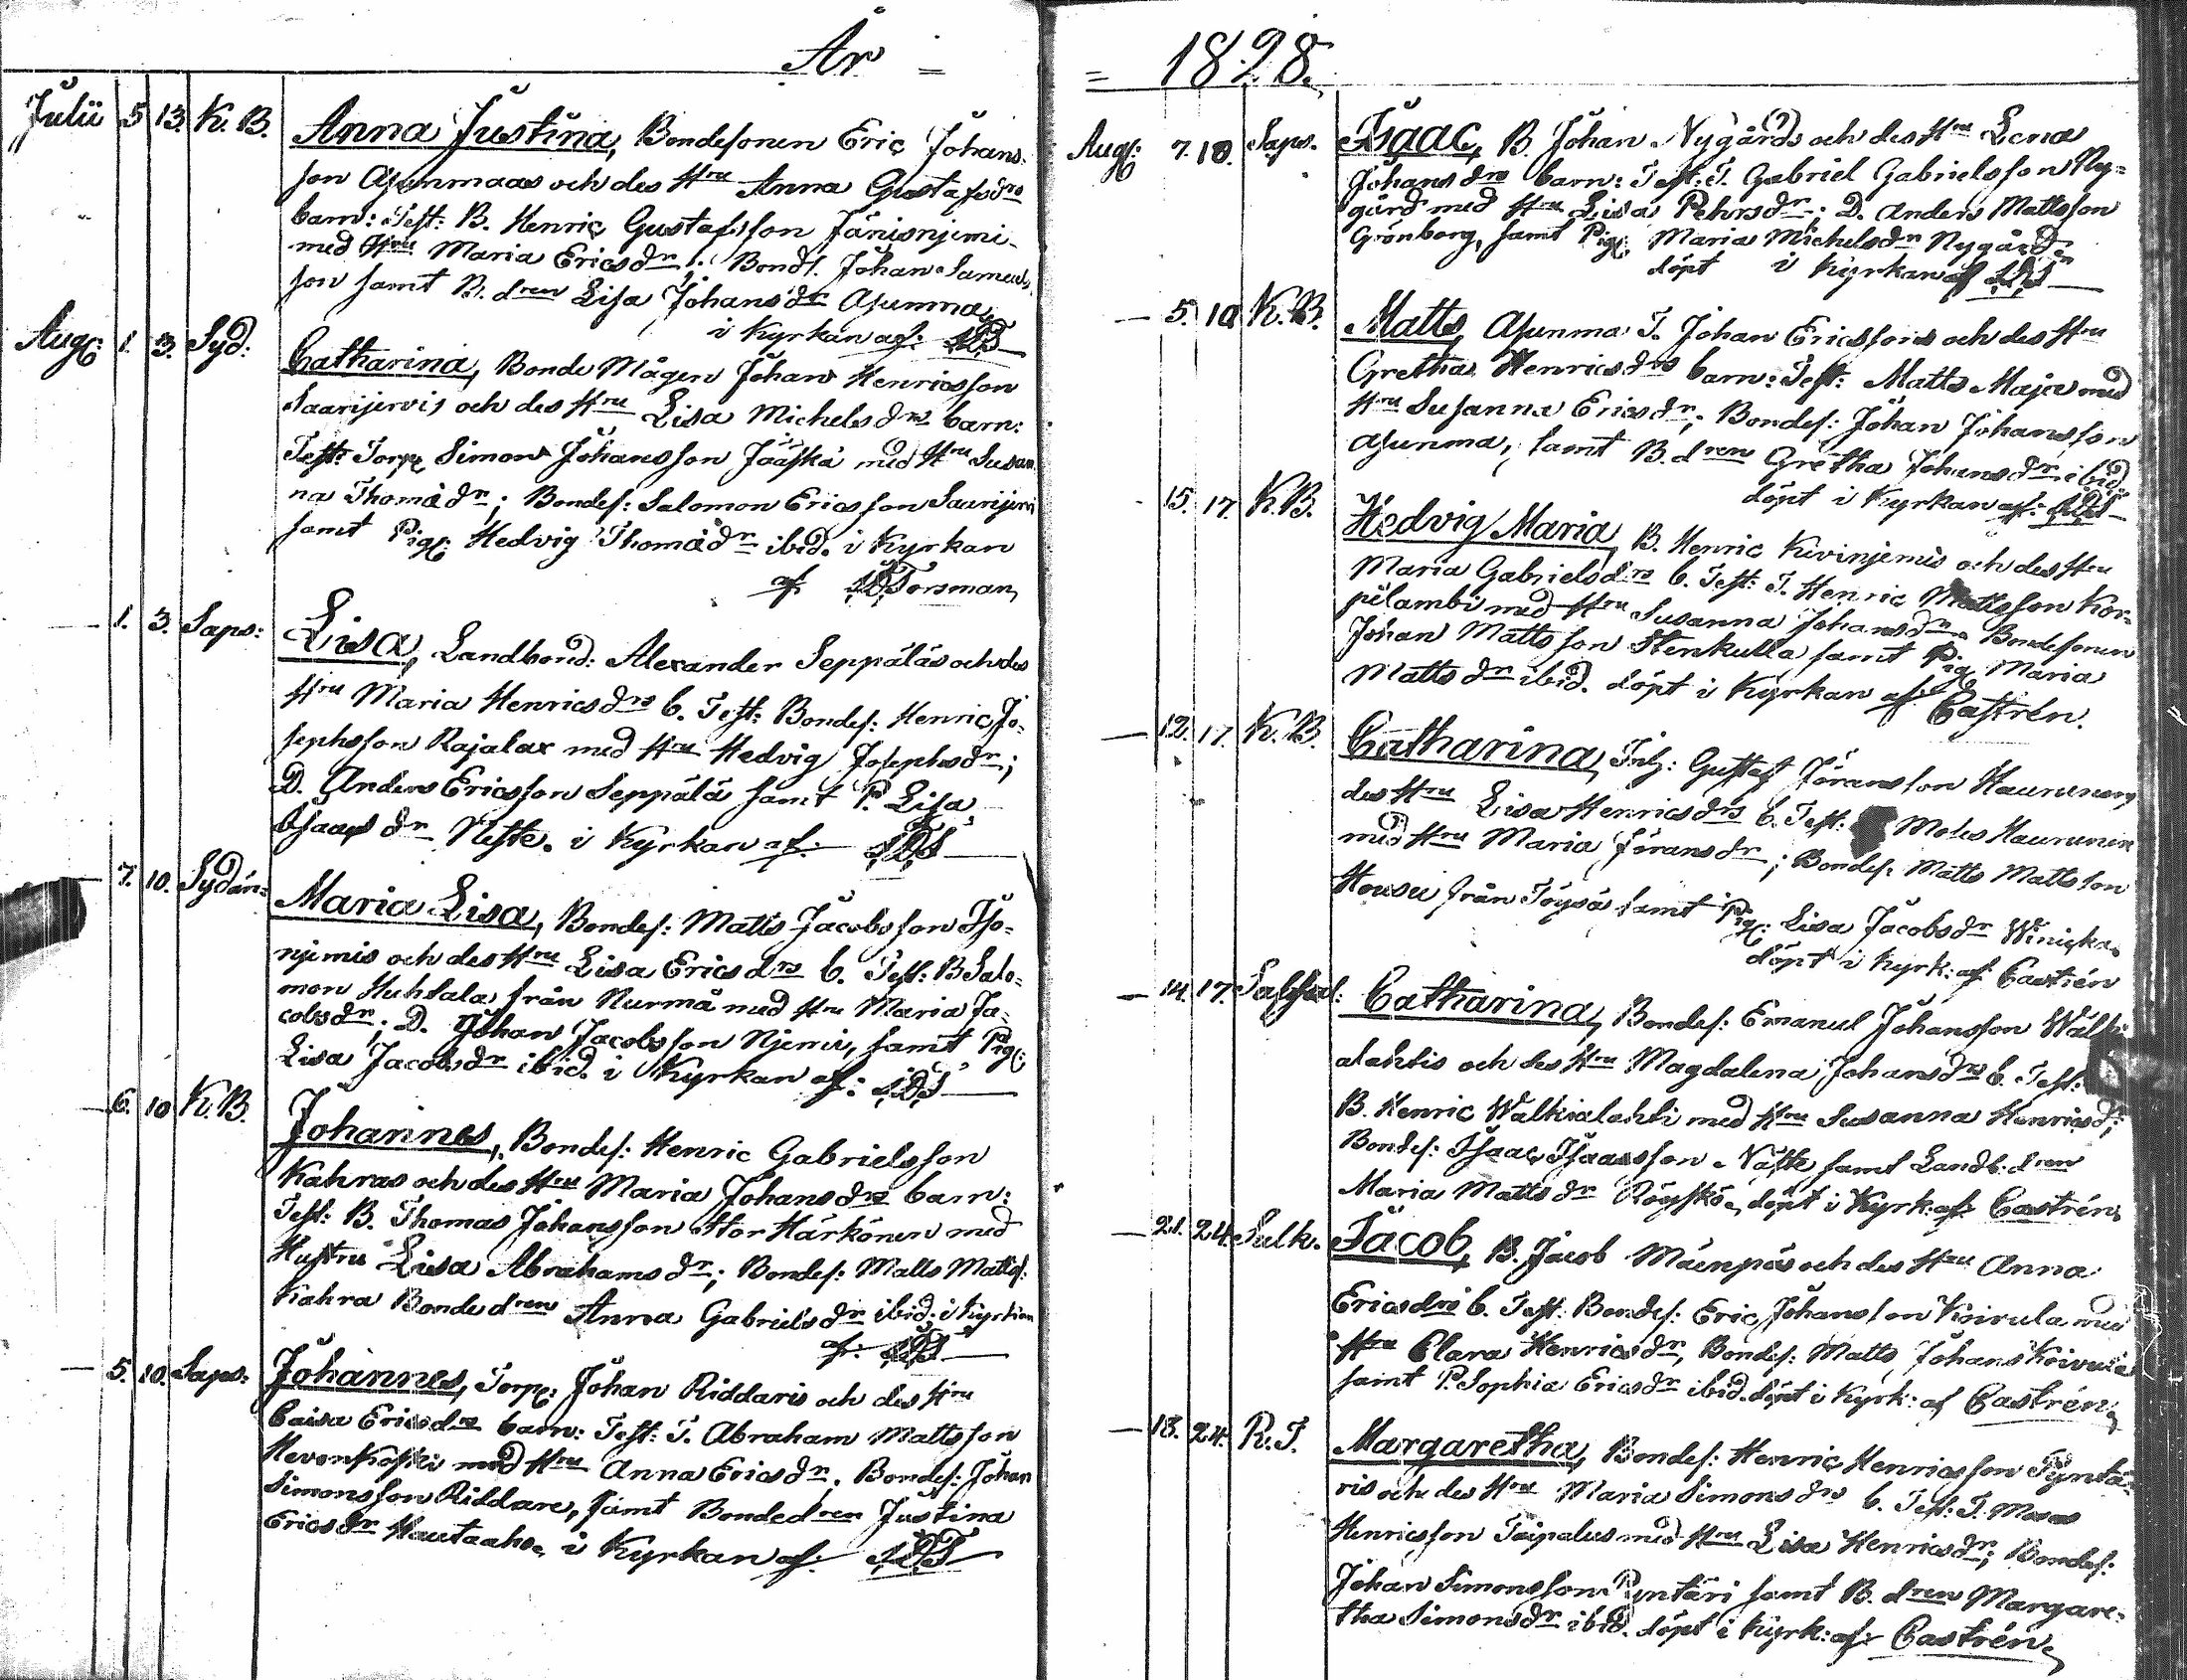 År =
Julii 5 13. K. B. Anna Justina, Bondesonen Eric Johans-
son Ajunmaas och des Hru Anna Gustafsdrs
barn: Test: B. Henric Gustafsson Jänisnjemi
med Hru Maria Ericsdr; Bonds. Johan Samuels
son samt B. dren Lisa Johansdr Ajunma,
i Kyrkan af:
Aug: 1. 3. Syd: Catharina, Bonde Mågen Johan Henricsson
Saarijervis och des Hru Lisa Michelsdrs barn:
Test: Torp: Simon Johansson Jääskä med Hru Susan
na Thomädr; Bondes: Salomon Ericsson Saarijervi
samt Pig: Hedvig Thomädr ibid. i Kyrkan
af Forsman,
— 1. 3. Saps: Lisa, Landbond: Alexander Seppäläs och des
Hru Maria Henricsdrs b. Test: Bondes: Henric Jo-
sephsson Rajalax med Hru Hedvig Josephsdr;
D. Anders Ericsson Seppälä samt P. Lisa
Isaacsdr Neste. i Kyrkan af:
— 7. 10. Sydän= Maria Lisa, Bondes: Matts Jacobsson Iso=
njemis och des Hru Lisa Ericsdrs b. Test: B Salo=
mon Huhtala från Nurmå med Hru Maria Ja=
cobsdr; D. Johan Jacobsson Njemi, samt Pig:
Lisa Jacobsdr ibid. i Kyrkan af:
— 6. 10 K. B. Johannes, Bondes: Henric Gabrielsson
Kahras och des Hru Maria Johansdrs barn:
Test: B. Thomas Johansson Stor Härkönen med
Hustru Lisa Abrahamsdr; Bondes: Matts Mattss:
Kahra Bonde dren Anna Gabrielsdr ibid. i Kyrkan
af:
— 5. 10. Saps: Johannes, Torp: Johan Riddaris och des Hru
Caisa Ericsdrs barn: Test: T. Abraham Mattsson
Hevonkoski med Hru Anna Ericsdr. Bondes: Johan
Simonsson Riddare, samt Bondedren Justina
Ericsdr Hautaaho. i Kyrkan af:
= 1828.
Aug: 7. 10. Saps. Isaac, B. Johan Nygårds (?) och des Hru Lena
Johansdrs barn: Test: T. Gabriel Gabrielsson Ny=
gård med Hru Lisa Pehrsdr; D. Anders Mattsson
Grönborg, samt Pig: Maria Michelsdr Nygård
döpt i Kyrkan af
— 5. 10 K. B. Matts, Ajunma T. Johan Ericssons och des Hru
Gretha Henricsdrs barn: Test: Matts Maja med
Hru Susanna Ericsdr; Bondes: Johan Johansson
Ajunma, samt B. dren Gretha Johansdr ibid.
döpt i Kyrkan af:
- 15. 17. K. B. Hedvig Maria, B. Henric Kivinjemis och des Hru
Maria Gabrielsdrs b. Test: T. Henric Mattsson Kor=
pilambi med Hru Susanna Johansdr. Bondesonen
Johan Mattsson Stenkulla samt Pig: Maria
Mattsdr ibid. döpt i Kyrkan af Castrén.
— 12. 17. K. B. Catharina, Inh: Gustaf Göransson Haurunen
des Hru Lisa Henricsdrs b. Test: Moses Haurunen
med Hru Maria Göransdr; Bondes. Matts Mattsson
Housu från Töysä samt Pig: Lisa Jacobsdr
döpt i Kyrk: af Castrén
— 14. 17. Catharina, Bondes: Emanuel Johansson Walki
alahtis och des Hru Magdalena Johansdrs b. Test:
B. Henric Walkialahti med Hru Susanna Henricsd;
Bondes: Isaac Isaacsson Näste samt Landb. dren
Maria Mattsdr Röyskö. döpt i Kyrk: af Castrén.
— 21. 24. Sulk. Jacob, B. Jacob Mäenpäs och des Hru Anna
Ericsdrs b. Test: Bondes: Eric Johansson Koivula med
Hru Clara Henricsdr, Bondes: Matts Johans Koivula
samt P. Sophia Ericsdr ibid. döpt i Kyrk: af Castrén.
— 18. 24. R. T. Margaretha, Bondes: Henric Henricsson Pyntä-
ris och des Hru Maria Simonsdrs b. Test: T. Moses
Henricsson Taipalus med Hru Lisa Henricsdr; Bondes:
Johan Simonsson Pyntäri samt B. dren Margare-
tha Simonsdr ibid. döpt i Kyrk: af: Castrén.